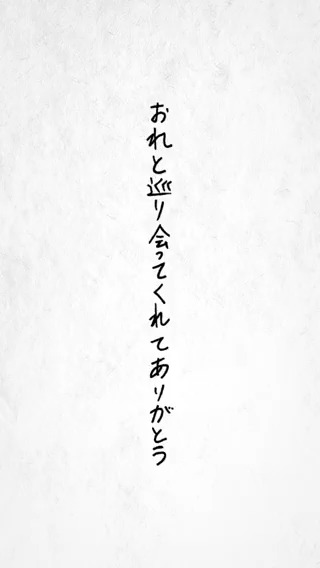 おれと巡り会ってくれてありがとう